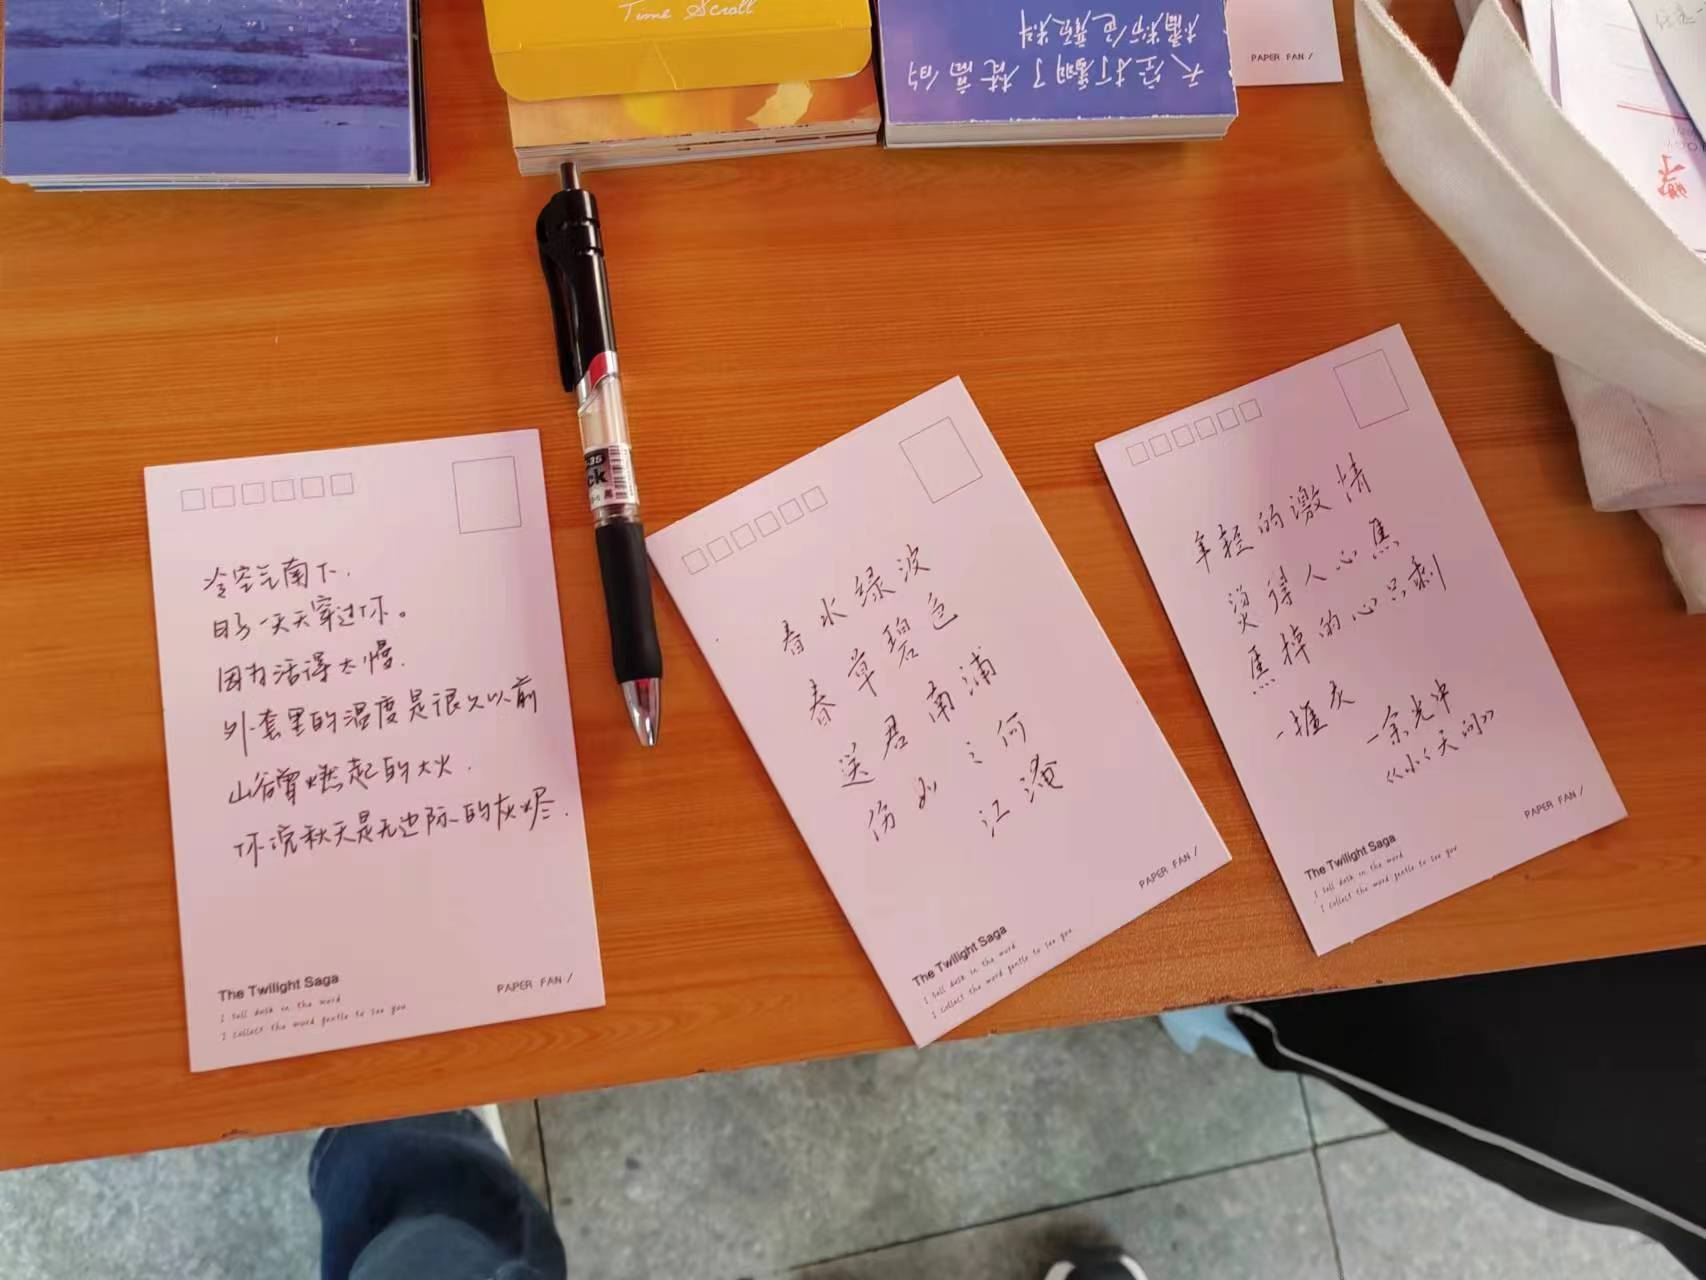 Time Scroll
天空打翻了梵高的
橘粉色颜料
PAPER FAN /
冷空气南下.
日子一天天穿过你。
因为活得太慢.
外套里的温度是很久以前
山谷曾燃起的大火.
你说秋天是无边际的灰烬.
The Twilight Saga
I sell dusk in the word
I collect the word gentle to see you
PAPER FAN /
春水绿波
春草碧色
送君南浦
伤如之何
江淹
The Twilight Saga
I sell dusk in the word
I collect the word gentle to see you
PAPER FAN /
年轻的激情
烫得人心焦
焦掉的心只剩
一堆灰
—余光中
《小小天问》
The Twilight Saga
I sell dusk in the word
I collect the word gentle to see you
PAPER FAN /